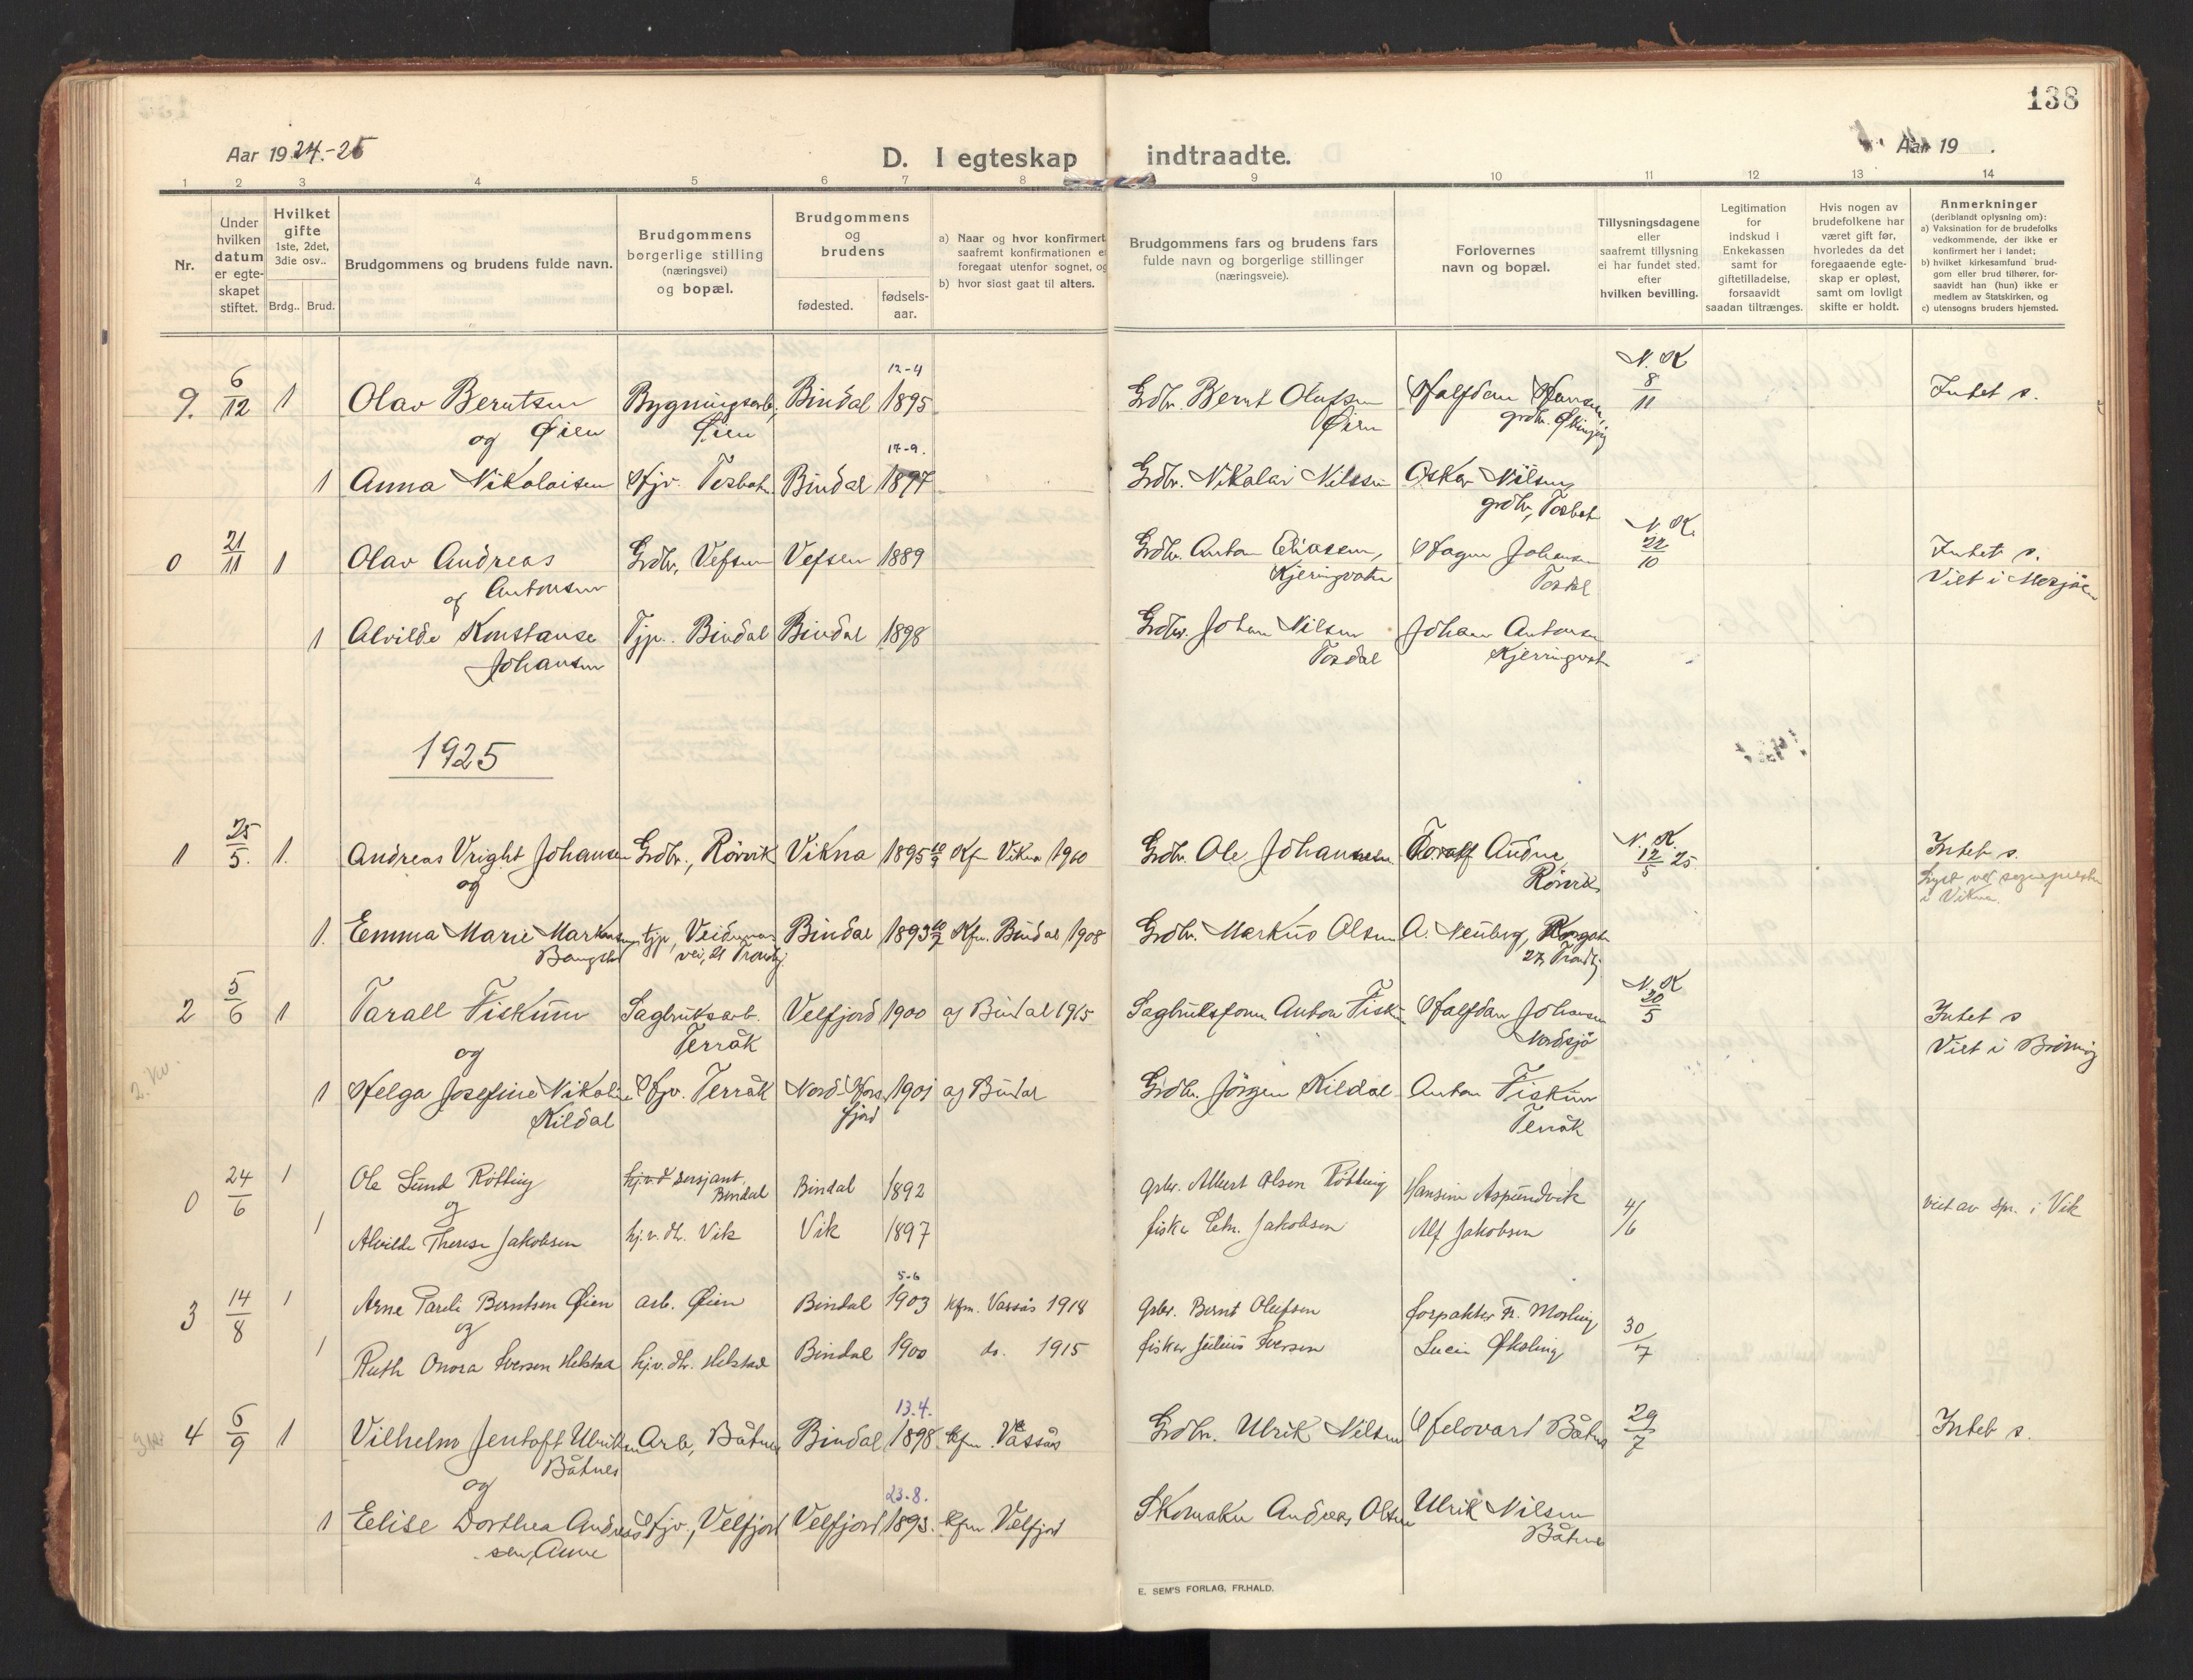 138
Aar 1924.-25
D. I egteskap indtraadte.
Aar 19 .
1 2 3 4 5 6 7 8 9 10 11 12 13 14
Nr.
Under hvilken datum er egteskapet stiftet.
Hvilket gifte 1ste, 2det, 3die osv..
Brdg.. Brud.
Brudgommens og brudens fulde navn.
Brudgommens borgerlige stilling (næringsvei) og bopæl.
Brudgommens og brudens
fødested.
fødsels-aar.
a) Naar og hvor konfirmert
saafremt konfirmationen e
foregaat utenfor sognet, og
b) hvor sidst gaat til alters.
Brudgommens fars og brudens fars
fulde navn og borgerlige stillinger
(næringsveie).
Forlovernes
navn og bopæl.
Tillysningsdagene
eller
saafremt tillysning
ei har fundet sted.
efter
hvilken bevilling.
Legitimation
for
indskud i
Enkekassen
samt for
giftetilladelse,
forsaavidt
saadan tiltrænges.
Hvis nogen av
brudefolkene har
været gift før,
hvorledes da det
foregaaende egte-
skap er opløst,
samt om lovligt
skifte er holdt.
Anmerkninger
(deriblandt oplysning om):
a) Vaksination for de brudefolks
vedkommende, der ikke er
konfirmert her i landet;
b) hvilket kirkesamfund brud-
gom eller brud tilhører, for-
saavidt han (hun) ikke er
medlem av Statskirken, og
c) utensogns bruders hjemsted.
12-4 N. K
9. 6/12 1 Olav Berntsen Bygningsarb, Bindal 1895 Grdbr. Bernt Olufsen Halfdan Hansen, 8/11 Intet s.
og Øien Øien Øien grdbr.
14-9.
1 Anna Nikolaisen Hjv. Tosbotn Bindal 1897 Grdbr. Nikolai Nilssen Oskar Nilsen,
grdbr, Tosbotn
N. K.
0 21/11 1 Olav Andreas Grdbr, Vefsen Vefsen 1889 Grdbr. Anton Eliasen, Hagen Johansen 22/10 Intet s.
og Antonsen Kjeringvatn Tosdal Viet i Mosjøen
1 Alvilde Konstanse Tjp. Bindal Bindal 1898 Grdbr. Johan Nilsen Johan Antonsen
Johansen Tosdal Kjerringvatn
1925
N. K.
1 25/5. 1. Andreas Vright Johansen Grdbr., Rörvik Vikna 1895 10/9 Kfm Vikna 1910 Grdbr. Ole Johannesen Toralf Audne, 12/5 25. Intet s.
og Rörvik Lyst ved sogneprester i Vikna.
1. Emma Marie Markussen tjp, Bindal 1893 10/2 Kfm. Bindal 1908 Grdbr. Markus Olsen A. Neuberg,
Bangstad 27, Trondhj
N. K
2 5/6 1 Tarall Fiskum Sagbruksarb. Velfjord 1900 aj Bindal 1915 Sagbruksform Anton Fiskum Halfdan Johansen 20/5 Intet s
og Terråk Nordsjö Viet i Brönnöy
2. kv.
1 Helga Josefine Nikoline Hjv. Terråk 1901 aj Bindal Grdbr. Jörgen Kildal Anton Fiskum
Kildal fjord Terråk
0 24/6 1 Ole Lund Röthing sersjant, Bindal Bindal 1892 gbr. Albert Olsen Röthing Hansine Aspundvik 4/6 viet av spr. i Vik
og
1 Alvilde Therese Jakobsen hj.v. dtr. Vik Vik 1897 fisker Edv. Jakobsen Alf Jakobsen
5-6
3 14/8 1 Arne Pareli Berntsen Øien arb. Øien Bindal 1903 kfm. Vassås 1918 Gbr. Bernt Olufsen forpakter Fr. Morling 30/7
og
1 Ruth Onora Iversen Helstad hj.v. dtr. Helstad Bindal 1900 do. 1915 fisker Julius Iversen Lucie Øksling
13.4.
4 6/9 1 Vilhelm Jentoft Ulriksen Arb, Båtnes Bindal 1898 Kfm Vassås Grdbr. Ulrik Nilsen Helovard Båtnes 29/7 Intet s.
Båtnes
og
23-8.
1 Eelise Dorthea Andreas Hjv., Velfjord Velfjord 1893. Kfm Velfjord Skomaker Andreas Olsen Ulrik Nilsen
sen, Aune Båtnes
E. SEM'S FORLAG, FR.HALD.